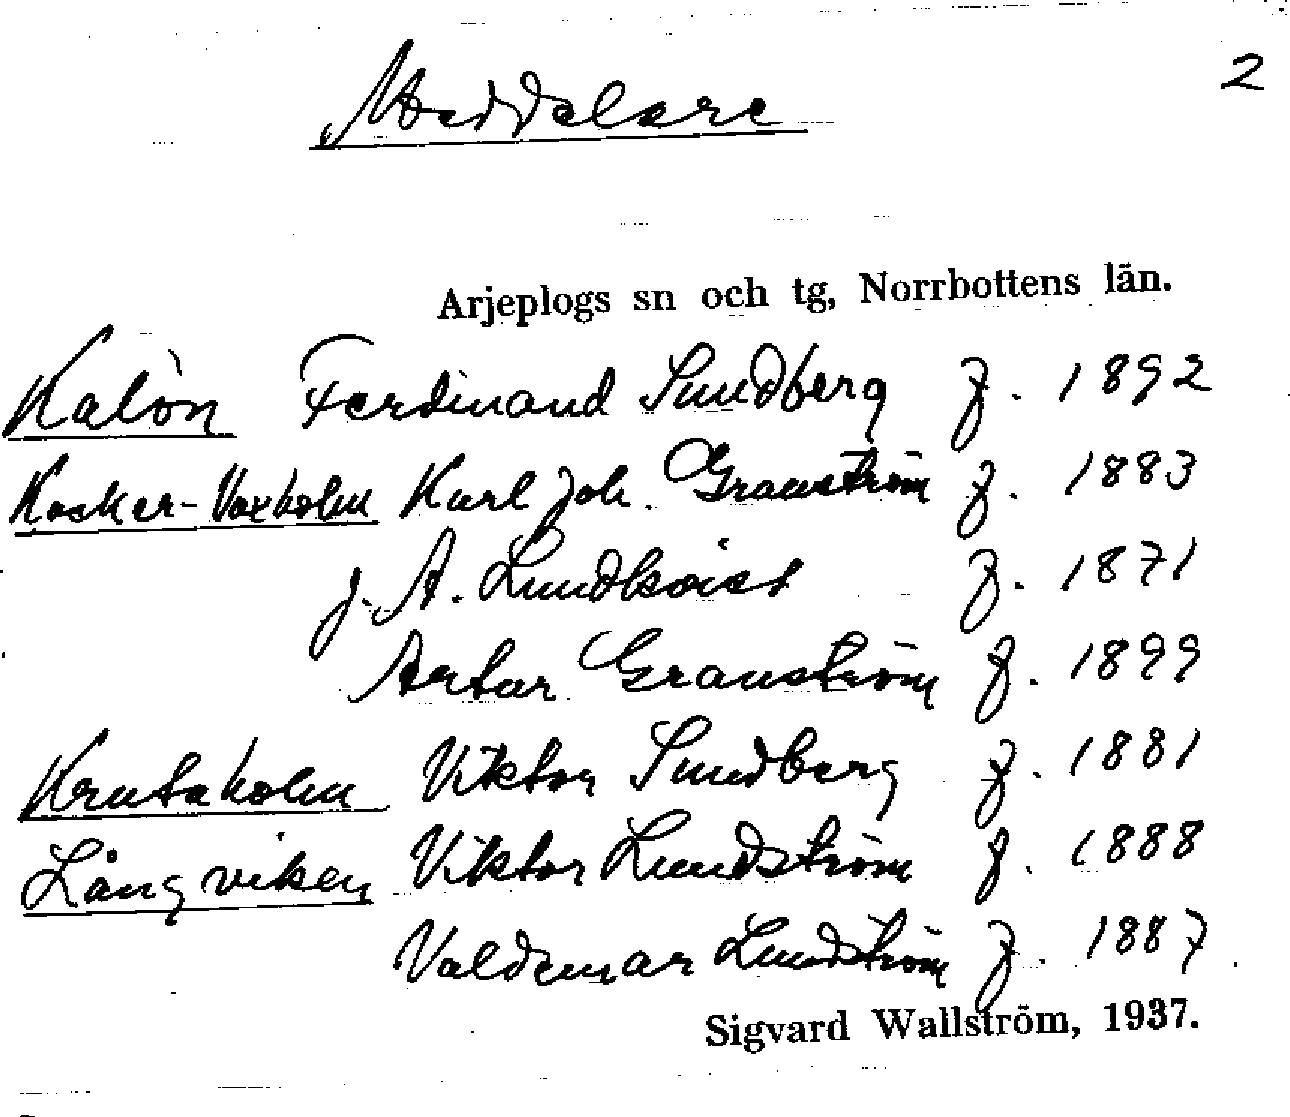 2
Meddelare
Arjeplogs sn och tg, Norrbottens län.
Kalön Ferdinand Sundberg f. 1892
Kasker-Vaxholm Karl Joh. Granström f. 1883
J. A. Lundkvist f. 1871
Artur Granström f. 1899
Krutaholm Viktor Sundberg f. 1881
Långviken Viktor Lundström f. 1888
Valdemar Lundström f. 1887
Sigvard Wallström, 1937.